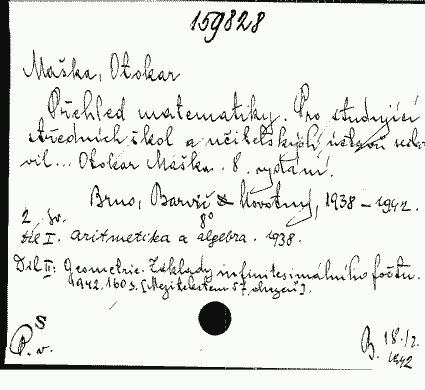 159828
Maška, Otokar
Přehled matematiky. Pro studující
středních škol a učitelských ústavů sesta-
vil... Otokar Maška. 8. vydání.
Brno, Barvič & Novotný, 1938 - 1942.
2 sv. 8°
Díl I. Aritmetika a algebra. 1938.
Díl II: Geometrie. Základy infinitesimálního počtu.
1942. 160 s. [Mezi textem 57 obrazců].
S
P. v.
B. 18./2.
1942